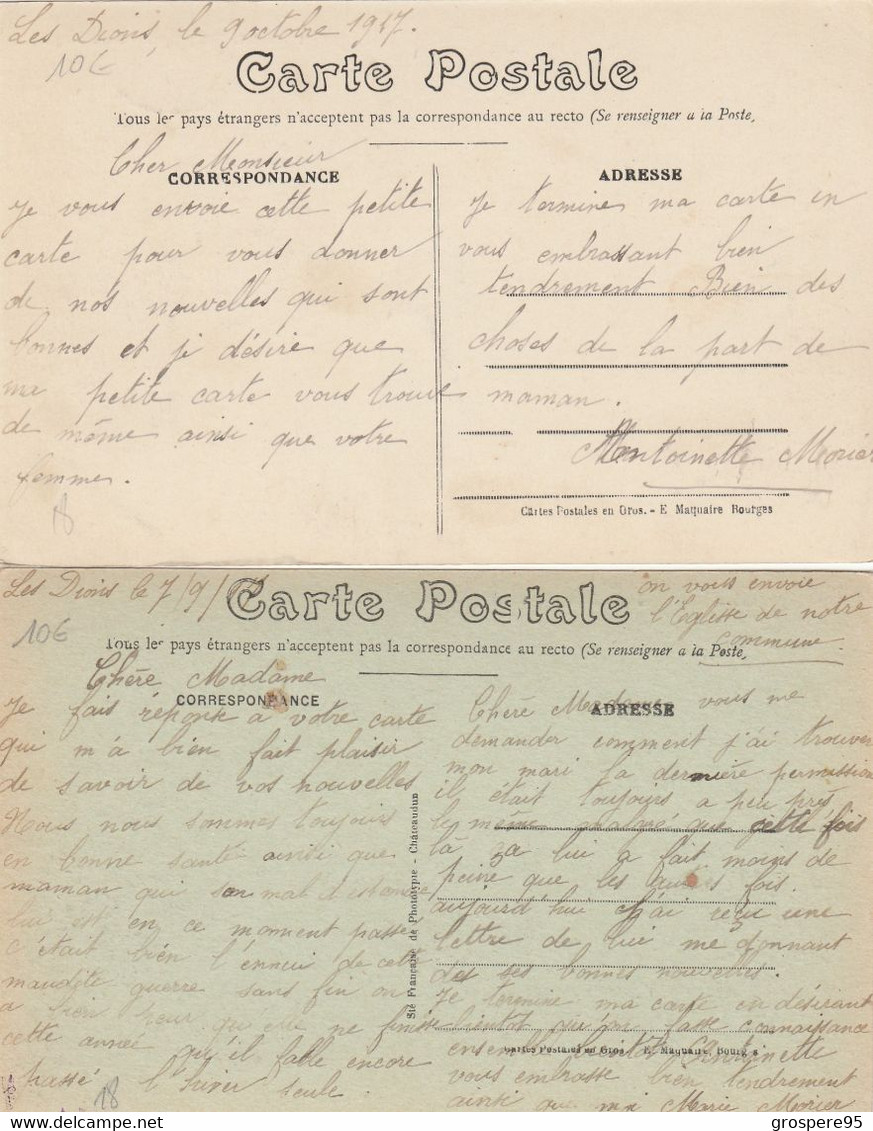 Les Dions, le 9 octobre 1917.
10€
Carte Postale
Tous les pays étrangers n'acceptent pas la correspondance au recto (Se renseigner a la Poste,
Cher Monsieur
CORRESPONDANCE
Je vous envoie cette petite
carte pour vous donner
de nos nouvelles qui sont
bonnes et je désire que
ma petite carte vous trouve
de même ainsi que votre
femme.
18
ADRESSE
Je termine ma carte en
vous embrassant bien
tendrement Bien des
choses de la part de
maman.
Antoinette Morier
Cartes Postales en Gros. - E Maquaire Bourges
Les Dions le 7/9/
10€
Carte Postale
on vous envoie
l'Eglisse de notre
commune
Tous les pays étrangers n'acceptent pas la correspondance au recto (Se renseigner a la Poste,
Chère Madame
CORRESPONDANCE
Je fais réponse a votre carte
qui m'a bien fait plaisir
de savoir de vos nouvelles
Nous nous sommes toujours
en bonne santé ainsi que
maman qui son mal
est en ce moment passé
c'était bien l'ennui de cette
maudite guerre sans fin on
a bien peur que elle ne finisse
cette année qu'il falle encore
passé l'hiver seule.
18
Sté Française de Phototypie - Châteaudun
ADRESSE
Chère Madame vous me
demander comment j'ai trouver
mon mari la dernière permission
il était toujours a peu près
le même malgré que cette fois
la ça lui a fait moins de
peine que les autres fois.
aujourd'hui j'ai reçu une
lettre de lui me donnant
des ses bonnes nouvelles.
Je termine ma carte en désirant
bientot qu'on fasse connaissance
ensemble Antoinette
Cartes Postales en Gros - E. Maquaire, Bourg s
vous embrasse bien tendrement
ainsi que moi Marie Morier